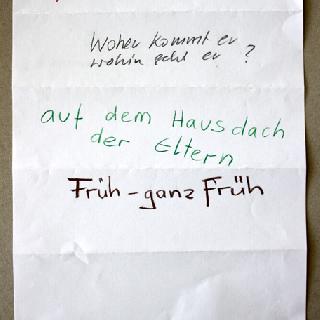 Woher kommt er
wohin geht er ?
auf dem Hausdach
der Eltern
Früh - ganz Früh